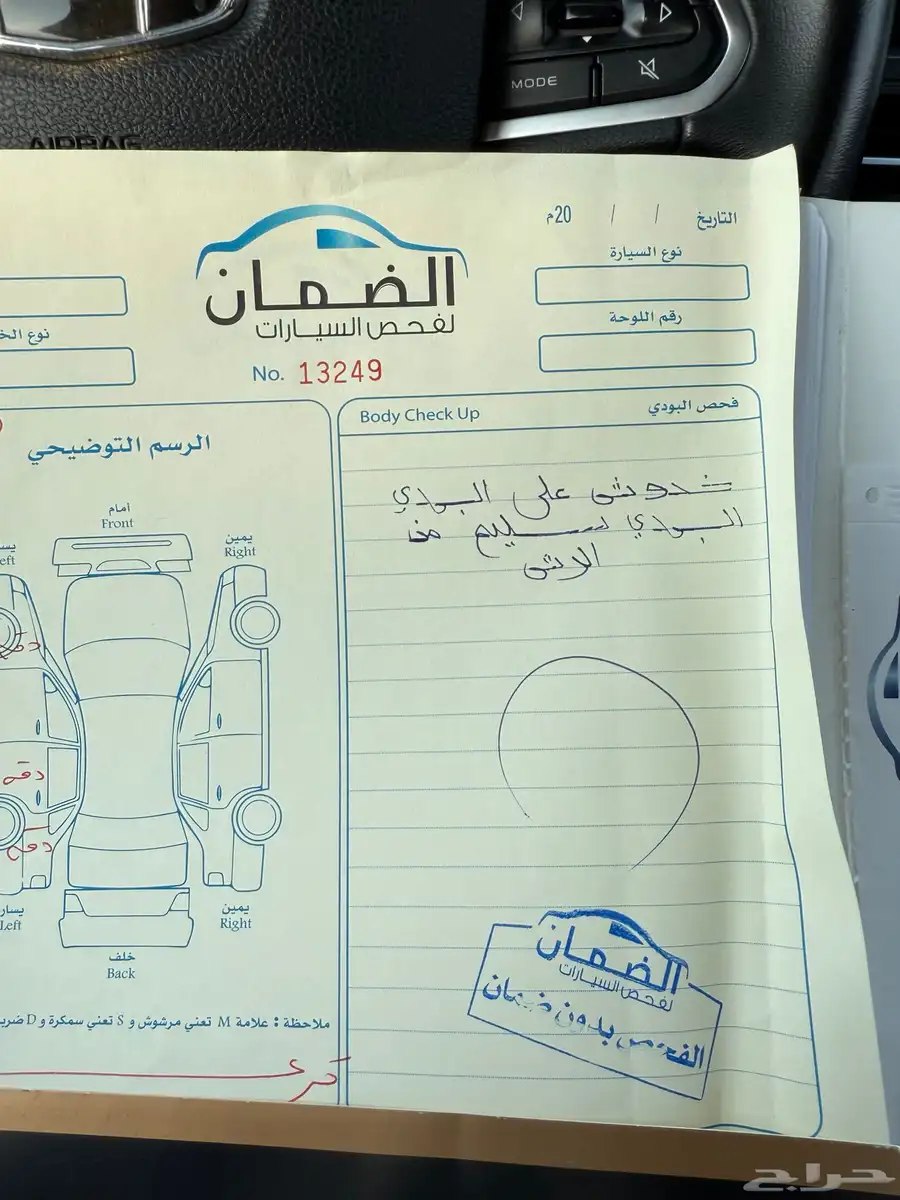 MODE
AIRBAG
التاريخ / / 20م
نوع السيارة
رقم اللوحة
الضمان
لفحص السيارات
No. 13249
نوع
فحص البودي Body Check Up
خدوش على البودي
البودي سليم من
الرش
الرسم التوضيحي
أمام
Front
يمين
Right
دقه
دقه
دقه
يمين
Right
يسار
Left
خلف
Back
ملاحظة : علامة M تعني مرشوش و S تعني سمكرة و D
الضمان
لفحص السيارات
الفحص بدون ضمان
حراج